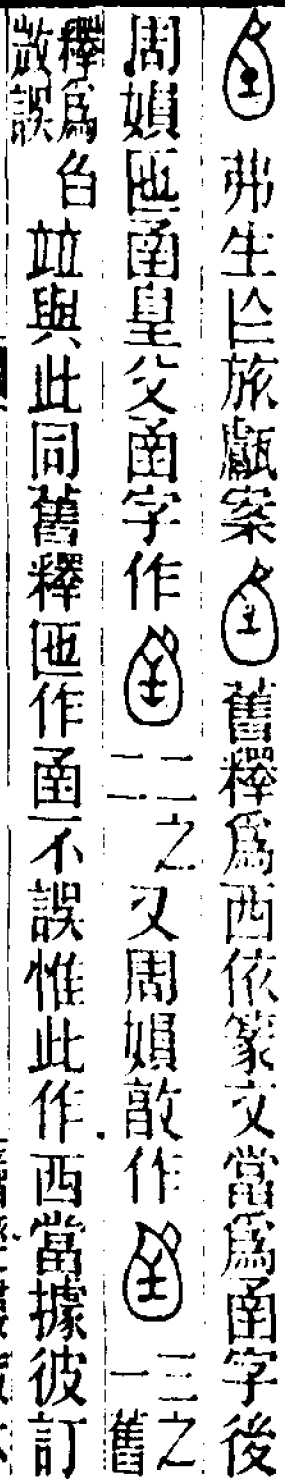 弗生仁旅甗案舊釋爲西依篆文當爲圅字後
周媜匜圅皇父圅字作二之二又周媜敢作三之一舊
釋爲台故誤竝與此同舊釋匜作圅不誤惟此作西當據彼訂